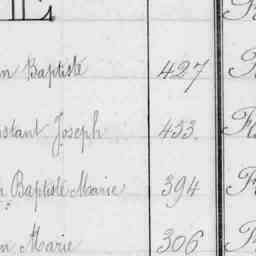 n Baptiste 427
nstant Joseph 433.
n Baptiste Marie 394
n Marie 306